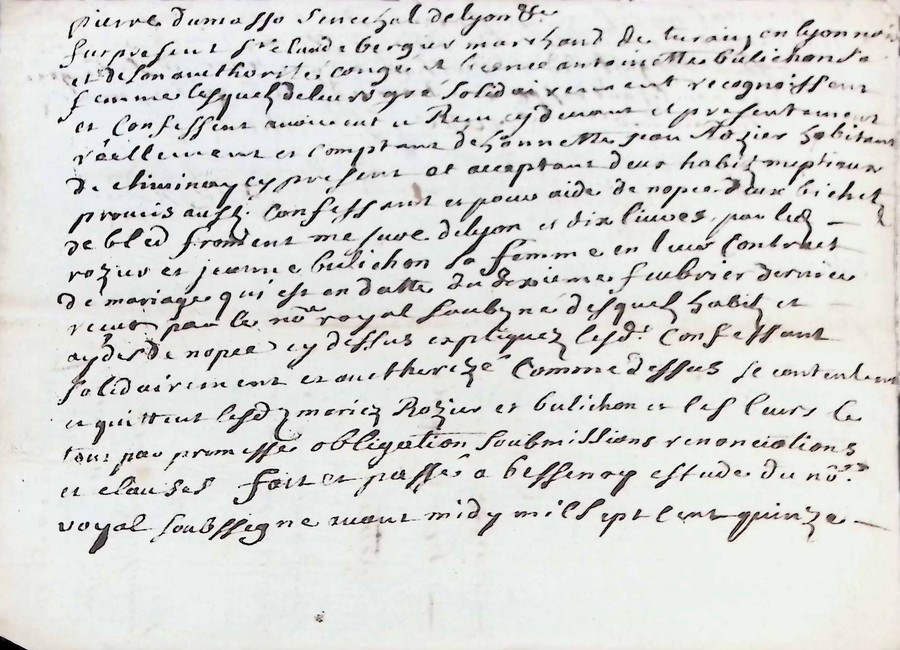 pierre dumasso Senechal de lyon &c
furpresent Sr claude berger marchand de turaizen lyonnois
et de son aucthorité congé et licence antoinette bulichon sa
femme lesquelz de leurs gré solidairement recognoissent
et Confessent avoir eut et Reçu cy devant et presentement
réellement et comptant de honneste jean Rozier habitant
de chivinay cy present et acceptant deux habitz neptiaux
promis aussy Confessant et pour aide de nopce deux bichetz
de bled froment mesure de lyon et dix livres, par lesdz
rozier et jeanne bulichon sa femme en leur Contract
de mariage qui est en datte du dixieme feubvrier dernier
receu par le nore royal soubzné desquelz habitz et
aydes de nopce cy dessus expliquez lesdt Confessant
solidairement et aucthorizé Comme dessus se contentent
et quittent lesdz mariez Rozier et bulichon et les leurs Ce
tout par promesse obligation soubmissions renonciations
et clauses fait et passé a bessenay estude du nore
royal soubssigne avant midy mil sept cent quinze